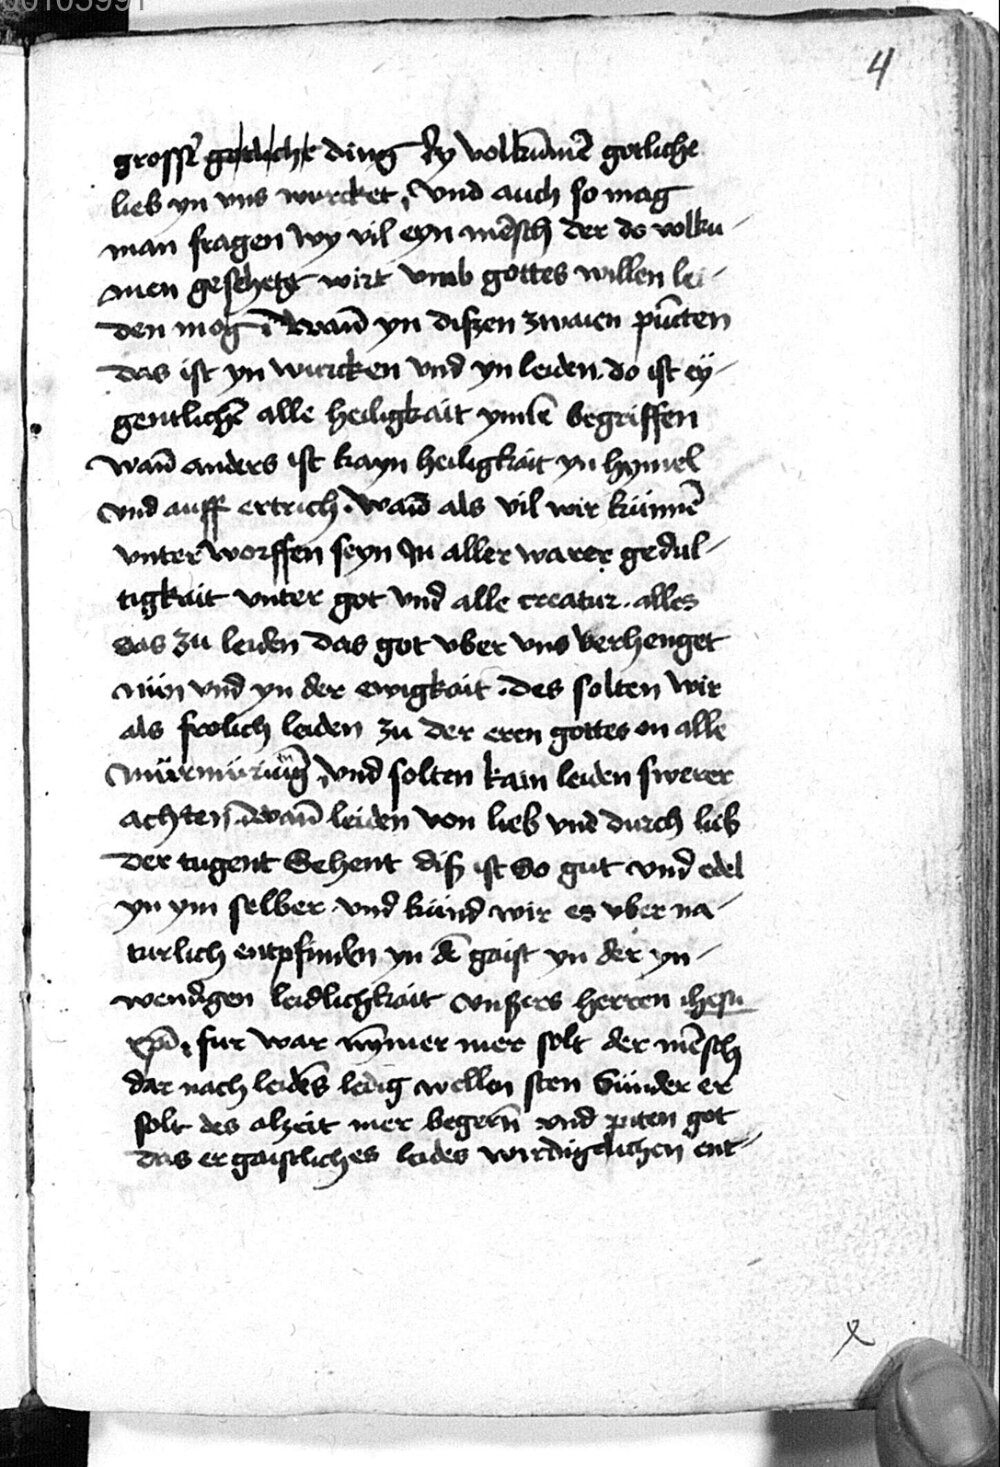 00103991
4
grosser gotlicher ding dy volkumē gotliche
lieb yn vns wurcket, vnd auch so mag
man fragen wy vil eyn mēsch der do volku-
men geschetzt wirt vmb gottes willen lei-
den mog Wañ yn dißen zwaien pūcten
das ist yn wurcken vnd yn leiden. do ist ey-
gentlichē alle heiligkait ynnē begriffen
wañ anders ist kayn heiligkait yn hymel
vnd auff ertrich. Wañ als vil wir künnē
vnterworffen seyn In aller warer gedul-
tigkait vnter got vnd alle creatur. alles
das zu leiden das got vber vns verhenget
nün vnd yn der ewigkait. des solten wir
als frolich leiden zu der eren gottes on alle
mürmürūg, vnd solten kain leiden swerer
achten, wañ leiden von lieb vnd durch lieb
der tugent Sehent diß ist So gut vnd edel
yn ym selber. vnd künd wir es vber na-
turlich entpfinden yn dē gaist yn der yn-
wendigen leidlichkait vnßers herren ihesu
xpī, fur war nÿmer mer solt der mēsch
dar nach leidēs ledig wellen sten Sünder er
solt des alzeit mer begerñ vnd piten got
das er gaistliches leides wirdigclichen ent-